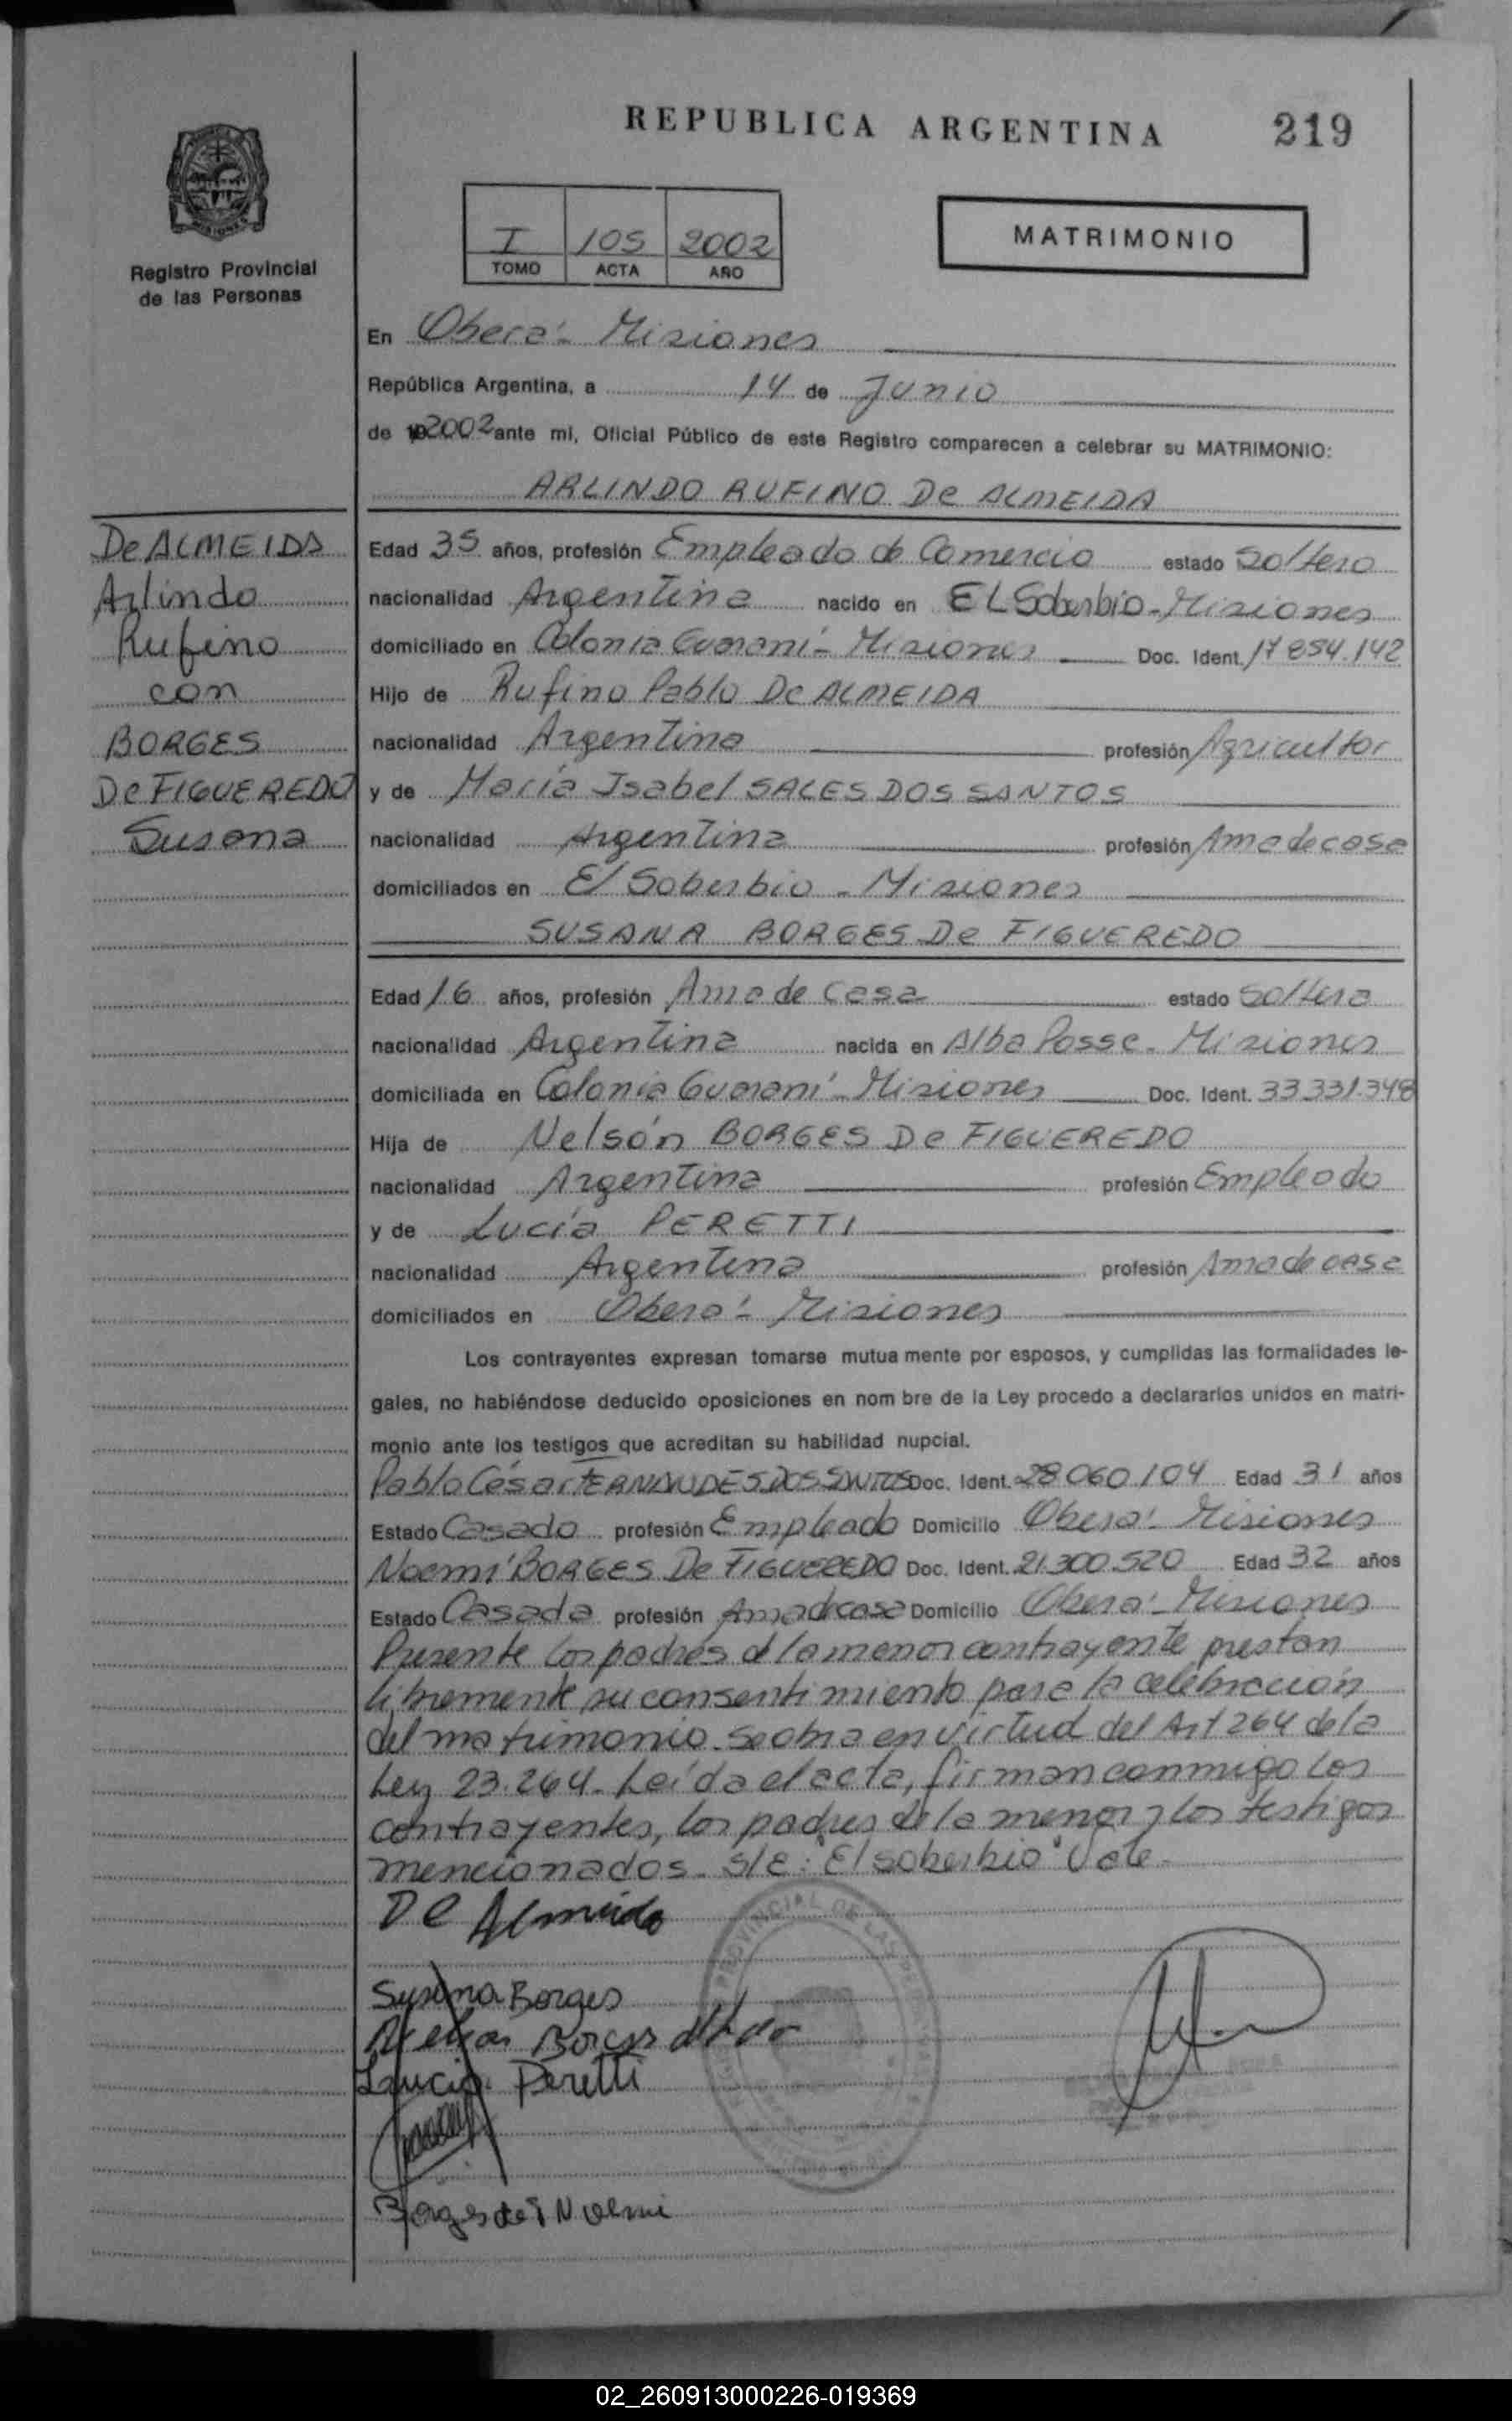 REPUBLICA ARGENTINA 219
Registro Provincial
de las Personas
I 105 2002
TOMO ACTA AÑO
MATRIMONIO
En Oberá - Misiones
República Argentina, a 14 de Junio
de 2002 ante mi, Oficial Público de este Registro comparecen a celebrar su MATRIMONIO:
ARLINDO RUFINO De ALMEIDA
De ALMEIDA
Arlindo
Rufino
con
BORGES
De FIGUEREDO
Susana
Edad 35 años, profesión Empleado de Comercio estado Soltero
nacionalidad Argentina nacido en EL Soberbio - Misiones
domiciliado en Colonia Guaraní - Misiones Doc. Ident. 17 854.142
Hijo de Rufino Pablo De ALMEIDA
nacionalidad Argentina profesión Agricultor
y de María Isabel SALES DOS SANTOS
nacionalidad Argentina profesión Ama de casa
domiciliados en El Soberbio - Misiones
SUSANA BORGES De FIGUEREDO
Edad 16 años, profesión Ama de Casa estado Soltera
nacionalidad Argentina nacida en Alba Posse - Misiones
domiciliada en Colonia Guaraní - Misiones Doc. Ident. 33 331.348
Hija de Nelsón BORGES De FIGUEREDO
nacionalidad Argentina profesión Empleado
y de Lucía PERETTI
nacionalidad Argentina profesión Ama de casa
domiciliados en Oberá - Misiones
Los contrayentes expresan tomarse mutua mente por esposos, y cumplidas las formalidades le-
gales, no habiéndose deducido oposiciones en nom bre de la Ley procedo a declararlos unidos en matri-
monio ante los testigos que acreditan su habilidad nupcial.
Pablo César FERNANDES DOS SANTOS Doc. Ident. 28 060.104 Edad 31 años
Estado Casado profesión Empleado Domicilio Oberá - Misiones
Noemí BORGES De FIGUEREDO Doc. Ident. 21.300.520 Edad 32 años
Estado Casada profesión Ama de casa Domicilio Oberá - Misiones
Presente los padres d la menor contrayente prestan
libremente su consentimiento para la celebración
del matrimonio. Se obra en virtud del Art 264 de la
Ley 23.264. Leída el acta, firman conmigo los
contrayentes, los padres de la menor y los testigos
mencionados. S/e: "El soberbio" Vale.
De Almeida
Susana Borges
Nelson Borges
Lucia Peretti
Borges de F Noemi
02_260913000226-019369